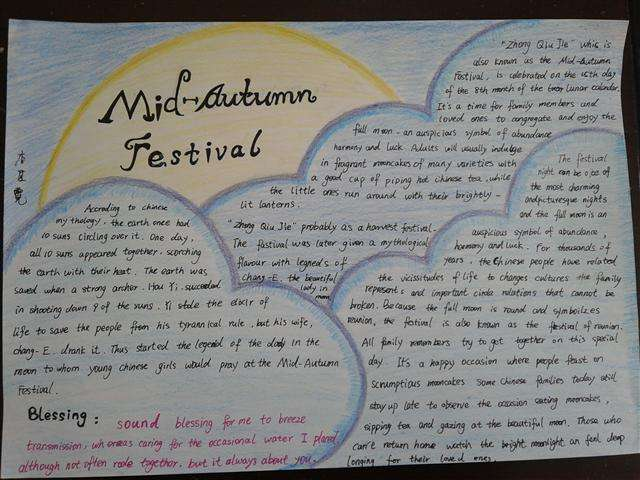 Mid-Autumn
Festival
"Zhong Qiu Jie" whis is
also known as the Mid-Autumn
Festival, is celebrated on the 15th day
of the 8th month of the lunar calendar.
It's a time for family members and
loved ones to congregate and enjoy the
full moon - an auspicious symbol of abundance
harmony and luck. Adults will usually indulge
in fragrant mooncakes of many varieties with
a good cup of piping hot chinese tea, while
the little ones run around with their brightly -
lit lanterns.
"Zhong Qiu Jie" probably as a harvest festival.
The fastival was later given a mythological
flavour with legneds of
chang-E. the beautiful
lady in
moon
According to chinese
mythology. the earth once had
10 suns circling over it. One day,
all 10 suns appeared together, scorching
the earth with their heat. The earth was
saved when a strong archer. Hou Yi. succeeded
in shooting down 9 of the suns. Yi stole the elixir of
life to save the people from his tyrannical rule, but his wife,
chang-E. drank it. Thus started the legend of the lady in the
moon to whom young chinese girls would pray at the Mid-Autumn
Festival.
The festival
night can be one of
the most charming
and picturesque nights
and the full moon is an
auspicious symbol of abundance,
harmony and luck. For thousands of
years. the Chinese people have related
the vicissitudes of life to changes cultures the family
represents and important circle relations that cannot be
broken. Because the full moon is round and symbolizes
reunion, the festival is also known as the festival of reunion.
All family members try to get together on this special
day. It's a happy occasion where people feast on
scrumptious mooncakes some Chinese families today still
stay up late to observe the occasion eating mooncakes,
sipping tea and gazing at the beautiful moon. Those who
can't return home watch the bright moonlight an feel deep
longing for their loved ones.
Blessing: sound blessing for me to breeze
transmission, whereas caring for the occasional water I planed
although not often rode together, but it always about you.